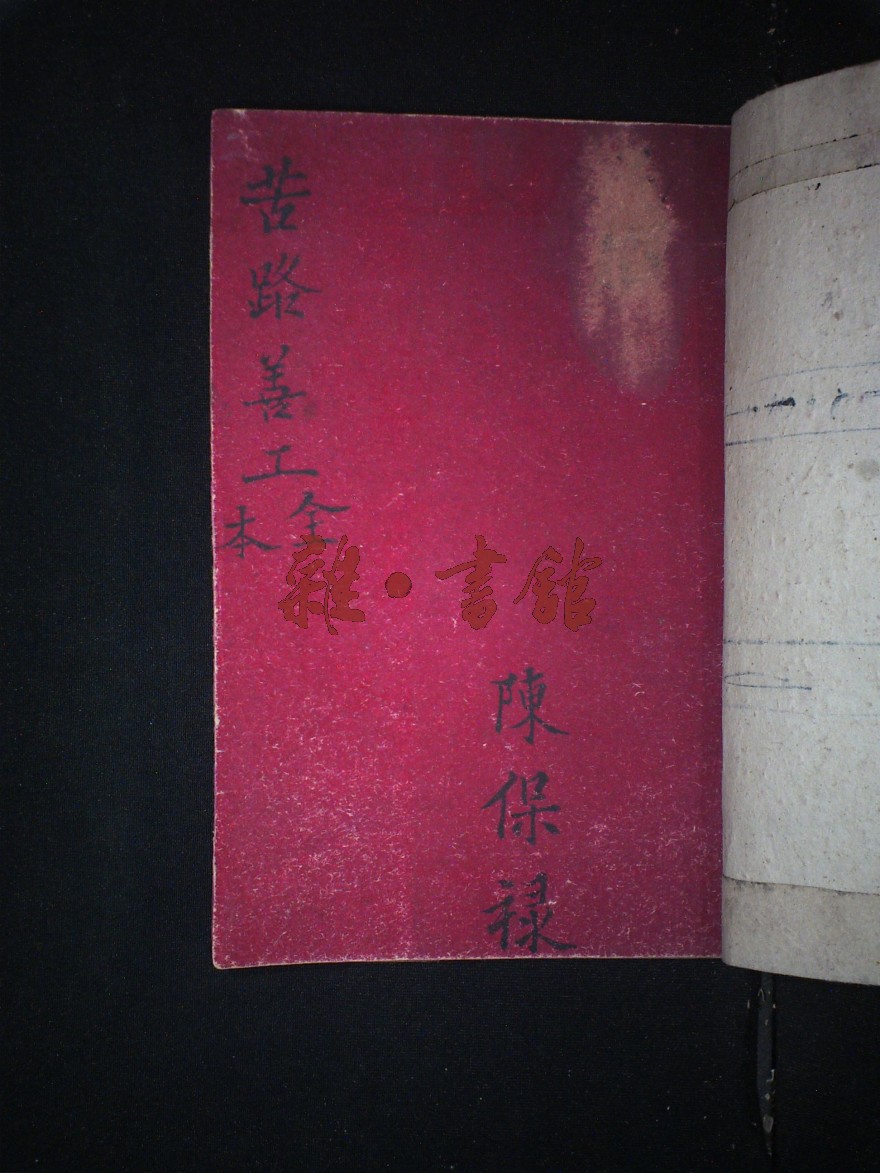 苦路善工
全
本
陳保禄
雜•書館